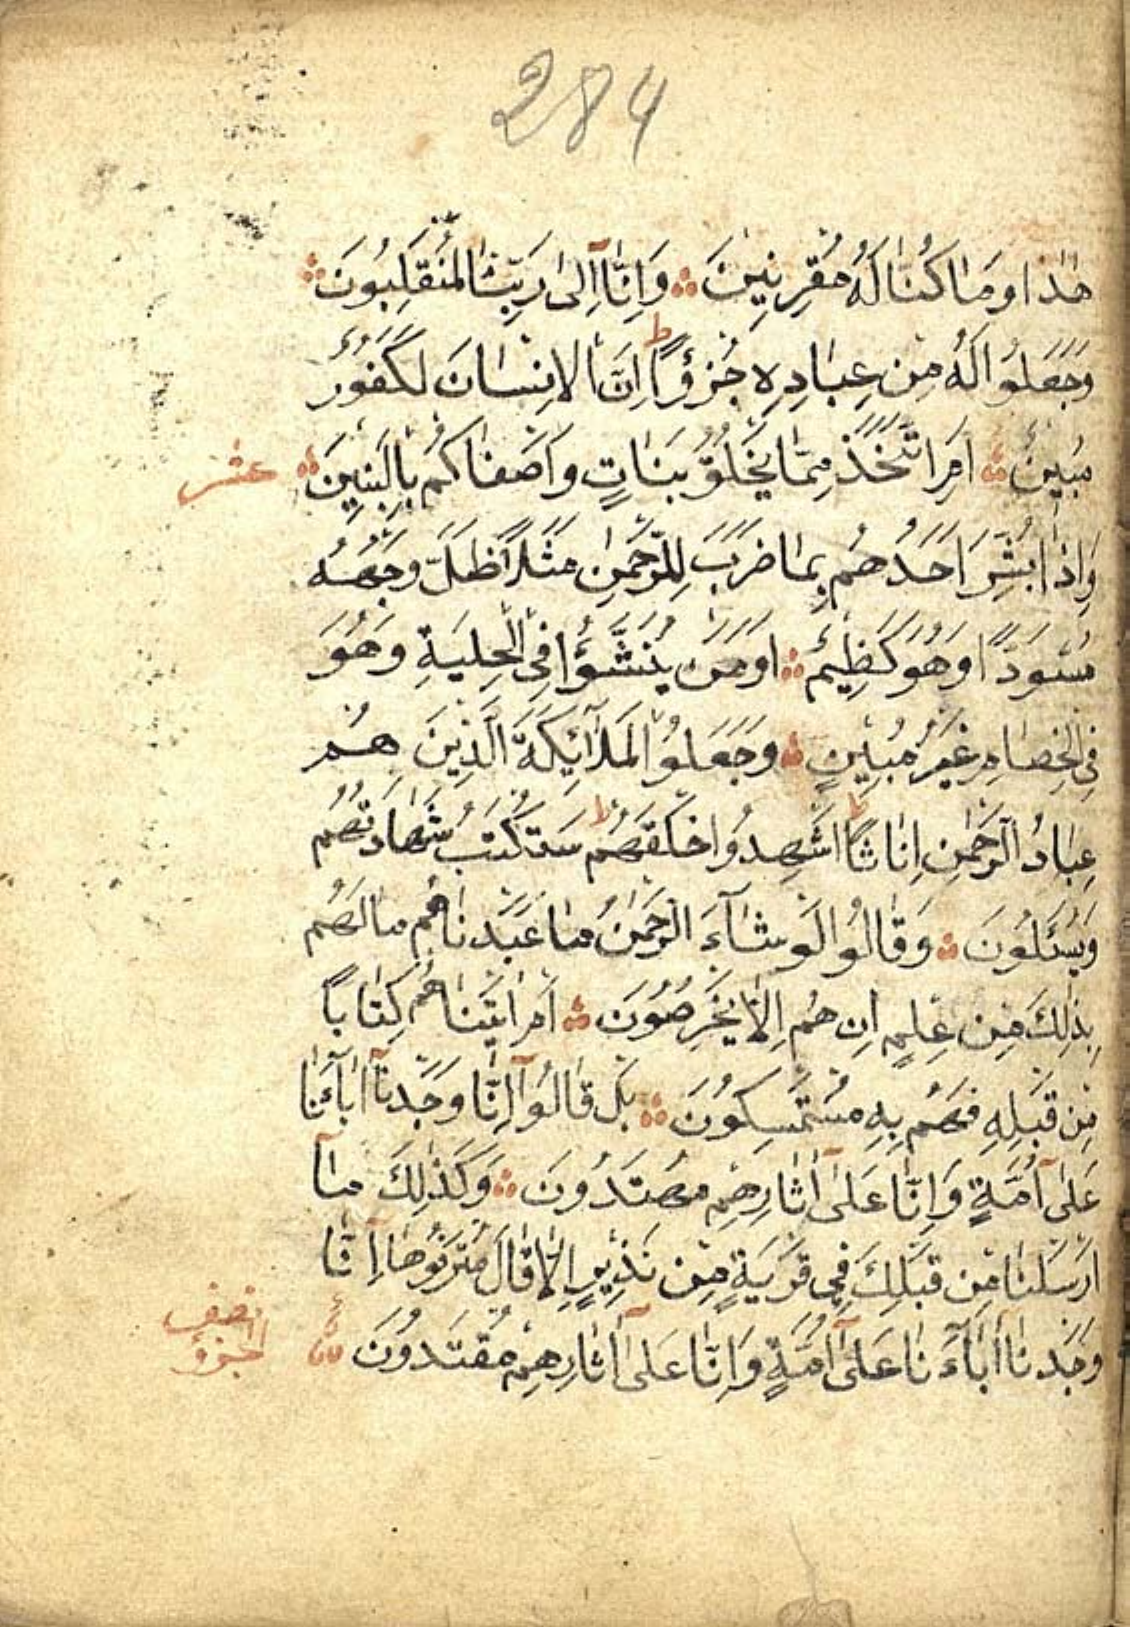 284
هٰذَا وَمَا كُنَّا لَهُ مُقْرِنِينَ وَاِنَّٓا اِلٰى رَبِّنَا لَمُنْقَلِبُونَ
وَجَعَلُوا لَهُ مِنْ عِبَادِهِ جُزْؤًا ط اِنَّ الْاِنْسَانَ لَكَفُورٌ
مُبِينٌ اَمِ اتَّخَذَ مِمَّا يَخْلُقُ بَنَاتٍ وَاَصْفَاكُمْ بِالْبَنِينَ عشر
وَاِذَا بُشِّرَ اَحَدُهُمْ بِمَا ضَرَبَ لِلرَّحْمٰنِ مَثَلًا ظَلَّ وَجْهُهُ
مُسْوَدًّا وَهُوَ كَظِيمٌ اَوَمَنْ يُنَشَّؤُا فِى الْحِلْيَةِ وَهُوَ
فِى الْخِصَامِ غَيْرُ مُبِينٍ وَجَعَلُوا الْمَلٰٓائِكَةَ الَّذِينَ هُمْ
عِبَادُ الرَّحْمٰنِ اِنَاثًا ط اَشَهِدُوا خَلْقَهُمْ ط سَتُكْتَبُ شَهَادَتُهُمْ
وَيُسْئَلُونَ وَقَالُوا لَوْ شَٓاءَ الرَّحْمٰنُ مَا عَبَدْنَاهُمْ مَا لَهُمْ
بِذٰلِكَ مِنْ عِلْمٍ اِنْ هُمْ اِلَّا يَخْرُصُونَ اَمْ اٰتَيْنَاهُمْ كِتَابًا
مِنْ قَبْلِهِ فَهُمْ بِهِ مُسْتَمْسِكُونَ بَلْ قَالُوٓا اِنَّا وَجَدْنَٓا اٰبَٓاءَنَا
عَلٰٓى اُمَّةٍ وَاِنَّا عَلٰٓى اٰثَارِهِمْ مُهْتَدُونَ وَكَذٰلِكَ مَٓا
اَرْسَلْنَا مِنْ قَبْلِكَ فِى قَرْيَةٍ مِنْ نَذِيرٍ اِلَّا قَالَ مُتْرَفُوهَٓا اِنَّا
وَجَدْنَٓا اٰبَٓاءَنَا عَلٰٓى اُمَّةٍ وَاِنَّا عَلٰٓى اٰثَارِهِمْ مُقْتَدُونَ
نصف
الجزؤ